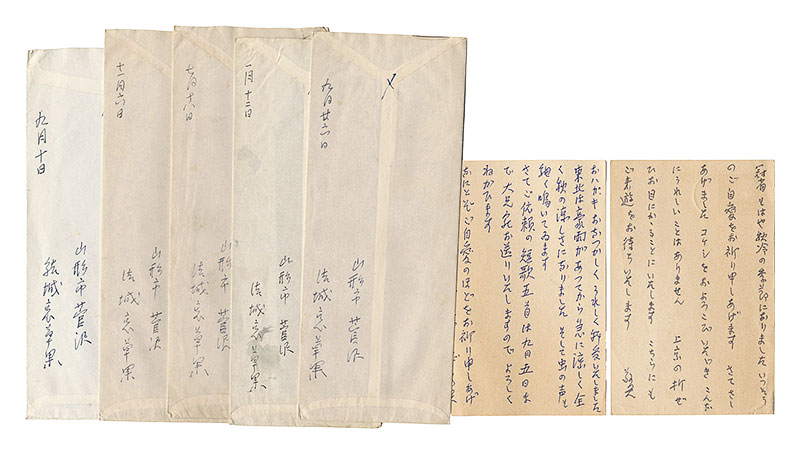 九月十日
山形市 菅沢
結城哀草果
十一月六日
山形市 菅沢
結城哀草果
七月十八日
山形市 菅沢
結城哀草果
一月十二日
山形市 菅沢
結城哀草果
〆
九月廿六日
山形市 菅沢
結城哀草果
冠省 もはや秋冷の季節になりました いつそう
のご自愛をお祈り申しあげます さてさし
あげましたコケシをおよろこびいたゞきこんな
にうれしいことはありません 上京の折ぜ
ひお目にかゝることにいたします こちらにも
ご来遊をお待ちいたします 敬具
おハガキおなつかしくうれしく拝受いたしました
東北は豪雨があつてから急に涼しく全
く秋の涼しさになりました そして虫の声も
細く鳴いてゐます
さてご依頼の短歌五首は九月五日ま
で大兄宛お送りいたしますのでよろしく
ねがひます
なにとぞご自愛のほどをお祈り申しあげ